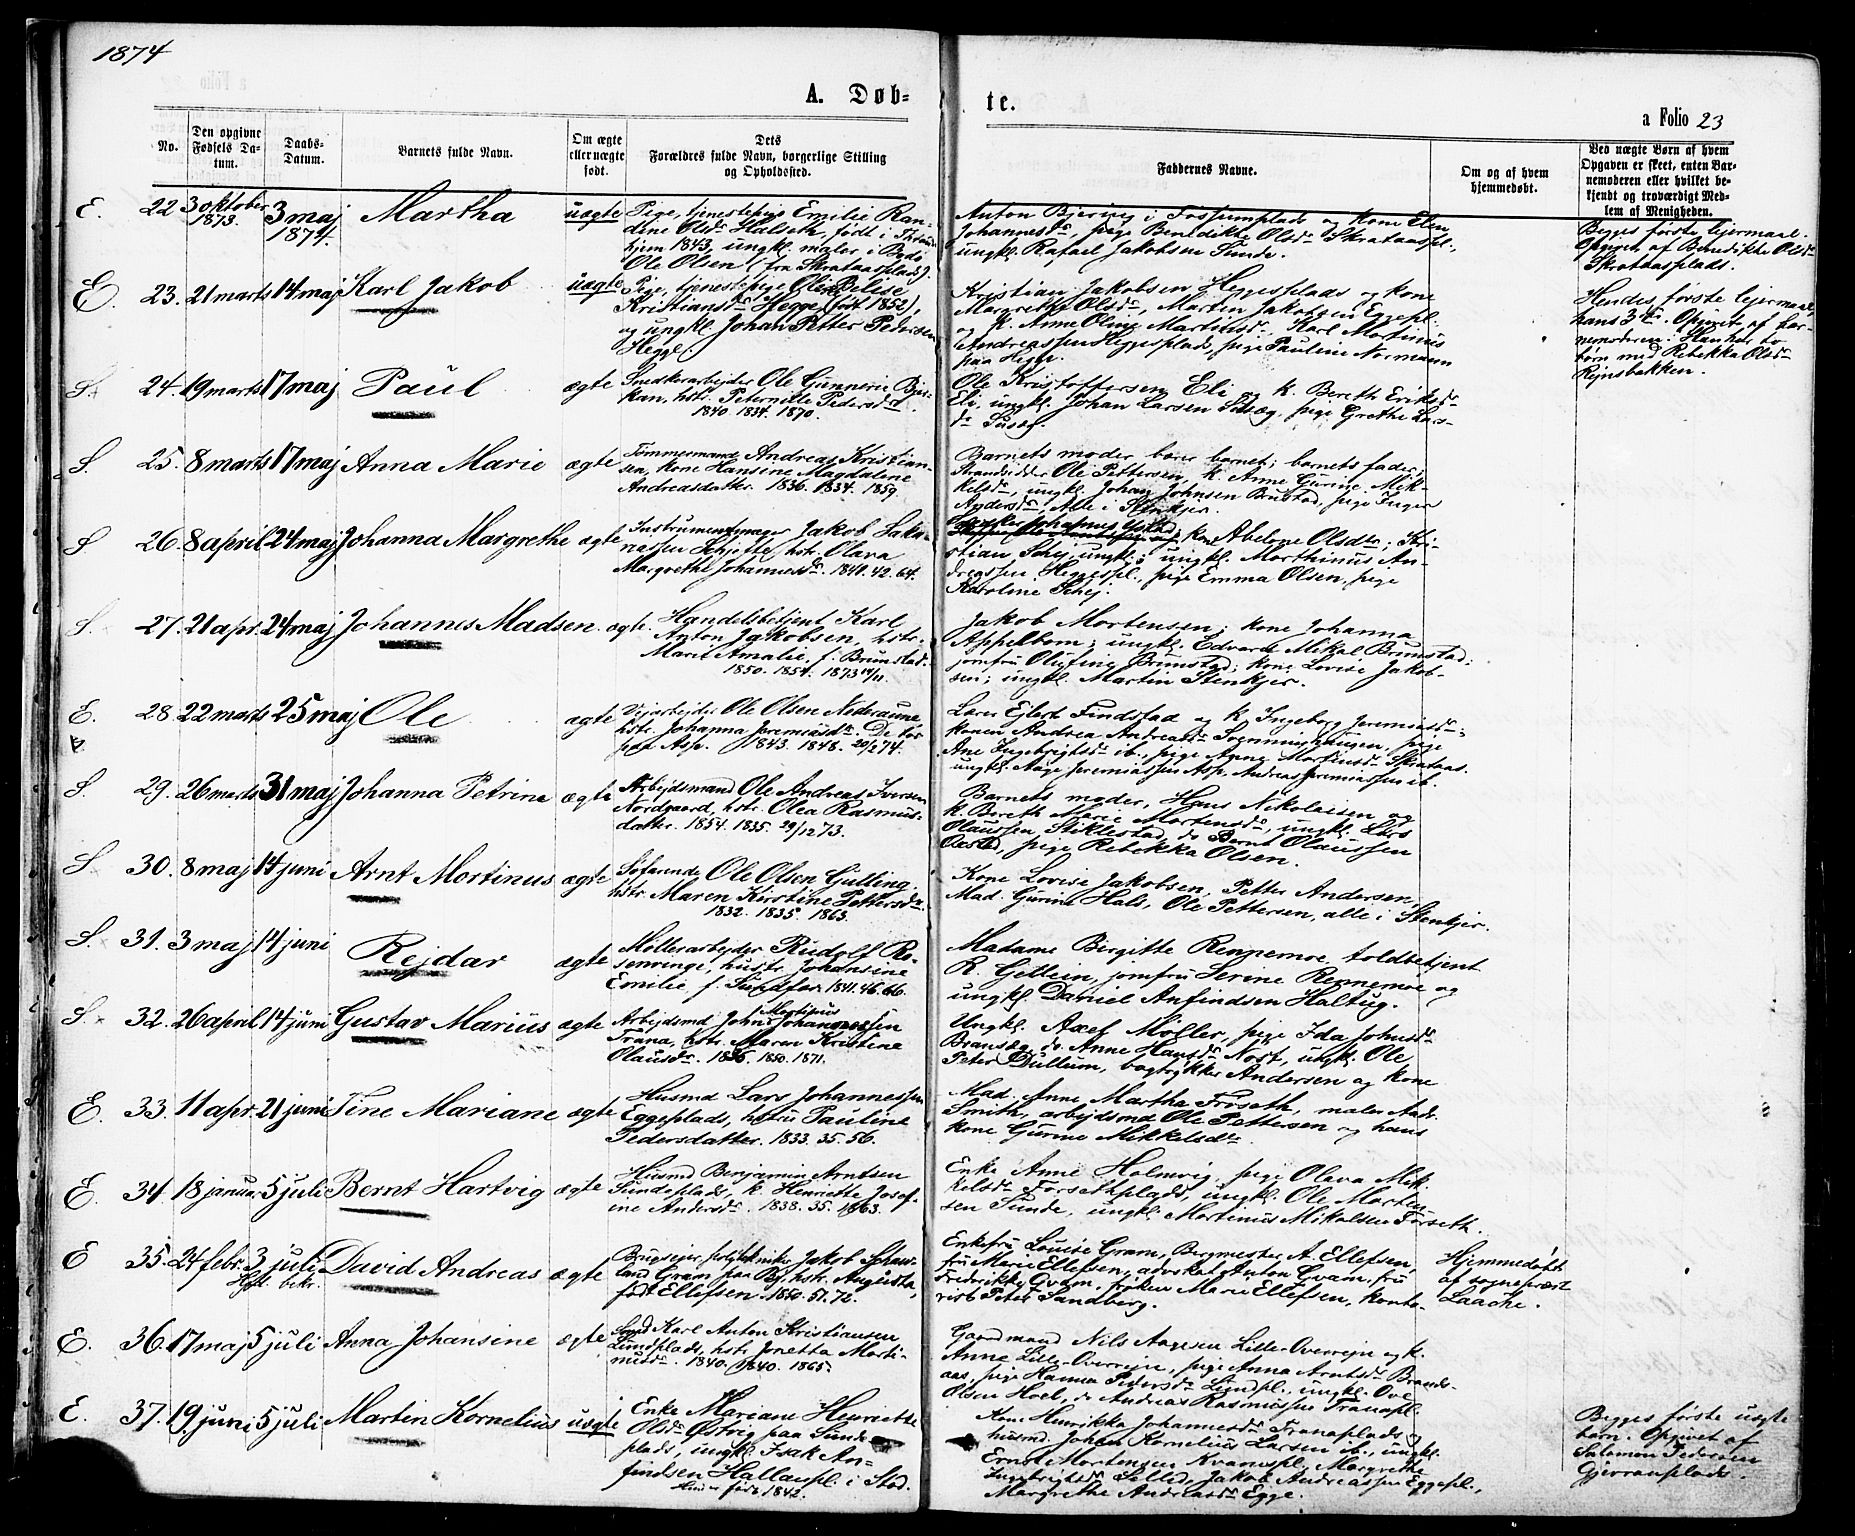 1874
A. Døb-
te.
a Folio 23
No.
Den opgivne Fødsels Da-tum.
Daabs-Datum.
Barnets fulde Navn.
Om ægte eller uægte født.
Dets Forældres fulde Navn, borgerlige Stilling og Opholdssted.
Faddernes Navne.
Om og af hvem hjemmedøbt.
Ved uægte Børn af hvem Opgaven er skeet, enten Bar-nemoderen eller hvilket be-kjendt og troværdigt Med-lem af Menigheden.
E. 22 3 oktober 1873. 3 maj 1874. Martha uægte
Pige, tjenestepige Emilie Ran-
dine Olsdr Halseth, født i Thrond-
hjem 1843, ungkl. maler i Bodø
Ole Olsen (fra Skrataasplads).
Anton Bjering i Fossumplads og kone Elen
Johannesdr, pige Benedikte Olsdr Skrataaspl.,
ungkl. Rafael Jakobsen Sunde.
Begges første lejermaal.
Opgivet af Benedikte Olsdr
Skrataasplads.
E. 23. 21 marts 14 maj Karl Jakob uægte
Pige, tjenestepige Oline Belise
Kristiansdr Hegge (født 1852),
og ungkl. Johan Petter Pedersen
Hegge.
Kristian Jakobsen Heggesplads og kone
Margrethe Olsdr, Martin Jakobsen Eggepl.
og k. Anne Oline Martinusdr, Karl Mortinus
Andreassen Heggesplads, pige Pauline Normann
paa Hegge.
Hendes første lejermaal,
hans 3die. Opgivet af bar-
nemoderen. Han har to
børn med Rebekka Olsdr
Rejnsbakken.
S. 24. 19 marts 17 maj Paul ægte
Snedkerarbejder Ole Gunnerius Bjer-
kan, hstr. Peternille Pedersdr.
1840. 1834. 1870.
Ole Kristoffersen Eli og k. Bereth Eriksdr
Eli, ungkl. Johan Larsen Susæg, pige Grethe Lars-
dr Susæg.
S. 25. 8 marts 17 maj Anna Marie ægte
Tømmermand Andreas Kristian-
sen, kone Hansine Magdalene
Andreasdatter. 1836. 1834. 1859.
Barnets moder bærer barnet; barnets fader;
Strandsidder Ole Pettersen, k. Anne Gurine Mik-
kelsdr, ungkl. Johan Johnsen Brustad, pige Inger
Andersdr, Alle i Stenkjer.
S 26. 8 april 24 maj Johanna Margrethe ægte
Instrumentmager Jakob Zaka-
riassen Schjefte, hstr. Olava
Margrethe Johannesdr. 1840. 42. 64.
Johannes Ystad, kone Abelone Olsdtr; Kri-
stian Schej, ungkl.; ungkl. Marthinus An-
dreassen Heggespl., pige Emma Olsen, pige
Karoline Schej.
S. 27. 21 apr. 24 maj Johannes Madsen. ægte.
Handelsbetjent Karl
Anton Jakobsen, hstr.
Marie Amalie f. Brunstad.
1850. 1854. 1873 14/11.
Jakob Mortensen; kone Johanna
Appelbom; ungkl. Edvard Mikal Brunstad;
jomfru Olufine Brunstad; kone Lovise Jakob-
sen; ungkl. Martin Stenkjer.
E. 28. 22 marts 25 maj Ole ægte
Vejarbejder Ole Olsen Nederaune,
hstr. Johanna Jeremiasdr. De bor
paa Asp. 1843. 1848. 20/2 74.
Lærer Ejlert Findstad og k. Ingeborg Jeremiasdr;
konen Andrea Andreasdr Svenninghaugen, pige
Ane Ingebrigtsdr ib., pige Agnes Mortinusdr Skrataas.
ungkl. Aage Jeremiassen Asp. Andreas Jeremiassen ib.
S. 29. 26 marts 31 maj Johanna Petrine ægte
Arbejdsmand Ole Andreas Iversen
Nordgaard, hstr. Olea Rasmus-
datter. 1854. 1835. 29/12 73.
Barnets moder, Hans Nikolaisen og
k. Bereth Marie Mortensdr, ungkl. Lars
Olaussen Stiklestad, do Bernt Olaussen
Øksted, pige Rebekka Olsen.
S. 30. 8 maj 14 juni Arnt Mortinus ægte
Søfarende Ole Olsen Gulling,
hstr. Maren Kirstine Pettersdr.
1832. 1835. 1863.
Kone Lovise Jakobsen, Petter Andersen,
Mad. Gurine Hals, Ole Pettersen, alle i Stenkjer.
S. 31. 3 maj 14 juni Rejdar ægte
Møllerarbejder Rudolf Ro-
senvinge, hustr. Johansine
Emilie f. Sundfær. 1841. 46. 66.
Madame Birgitte Rennemoe, toldbetjent
R. Gellein, jomfru Serine Rennemoe og
ungkl. Daniel Anfindsen Haltug.
S. 32. 26 april 14 juni Gustav Marius ægte
Arbejdsmd John Mortinus Johannessen
Trana, hstr. Maren Kristine
Olausdr. 1846. 1850. 1871.
Ungkl. Axel Møller, pige Ida Johnsdr
Bransæg, do. Anne Hansdr Nost, ungkl. Ole
Peter Dullum, bogtrykker Andersen og kone
E. 33. 11 apr. 21 juni Tine Mariane ægte
Husmd Lars Johannessen
Eggeplads, hustru Pauline
Pedersdatter. 1833. 35. 56.
Mad. Anne Martha Forseth, maler Andr.
Smith, arbejdsmd Ole Pettersen og hans
kone Gurine Mikkelsdtr.
E. 34. 18 januar 5 juli Bernt Hartvig ægte
Husmd Benjamin Arntsen
Sundeplads, k. Henriette Josef-
ine Andersdr. 1838. 35. 1863.
Enke Anne Holmvig, pige Olava Mik-
kelsdr Forsethplads, ungkl. Ole Morten-
sen Sunde, ungkl. Martinus Mikalsen Forseth.
E 35. 24 febr. 3 juli Hjd. bekr. David Andreas ægte
Brugsejer, polytekniker Jakob Schav-
land Gram paa By, hstr. Augusta,
født Ellefsen. 1840. 51. 72.
Enkefru Louise Gram, Bergmester A. Ellefsen,
fru Marie Ellefsen, advokat Anton Gram, fru
Fredrikke Gram, frøken Marie Ellefsen, konto-
rist Peter Sandberg.
Hjemmedøbt
af sognepræst
Laache.
E. 36. 17 maj 5 juli Anna Johansine ægte
Smd Karl Anton Kristiansen
Lundplads, hstr. Jonetta Morti-
nusdr. 1840. 1840. 1865.
Gaardmand Nils Aagesen Lille-Overrejn og k.
Anne Lille-Overrejn, pige Anna Arntsdr Brande-
aas, pige Hanna Pedersdr Lundpl., ungkl. Ove
Olsen Hoel, do Andreas Rasmussen Tranapl.
E. 37. 19 juni 5 juli Martin Kornelius uægte
Enke Mariane Henriette
Olsdr Østvig paa Sunde-
plads, ungkl. Isak An-
findsen Hallanspl. i Stod.
Hun er født 1842.
Kone Henrikka Johannesdr Tranaplads og
husmd. Johan Kornelius Larsen ib., ungkl.
Ernst Mortensen Kvamspl., Margrethe
Ingebrigtsdr Selled, Jakob Andreassen Eggepl.,
Margrethe Andreasdr Egge.
Begges første uægte
barn. Opgivet af
Salomon Pedersen
Gjævranplads.